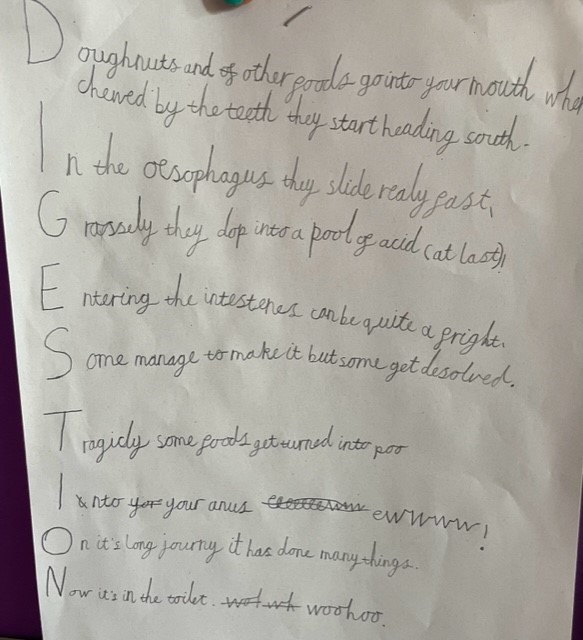 Doughnuts and other foods go into your mouth
chewed by the teeth they start heading south.
In the oesophagus they slide realy fast,
Grossely they dop into a pool of acid (at last),
Entering the intestenes can be quite a fright.
Some manage to make it but some get desolved.
Tragicly some foods get turned into poo
Into your anus ewwww!
On it's long journy it has done many things.
Now it's in the toilet. woohoo.